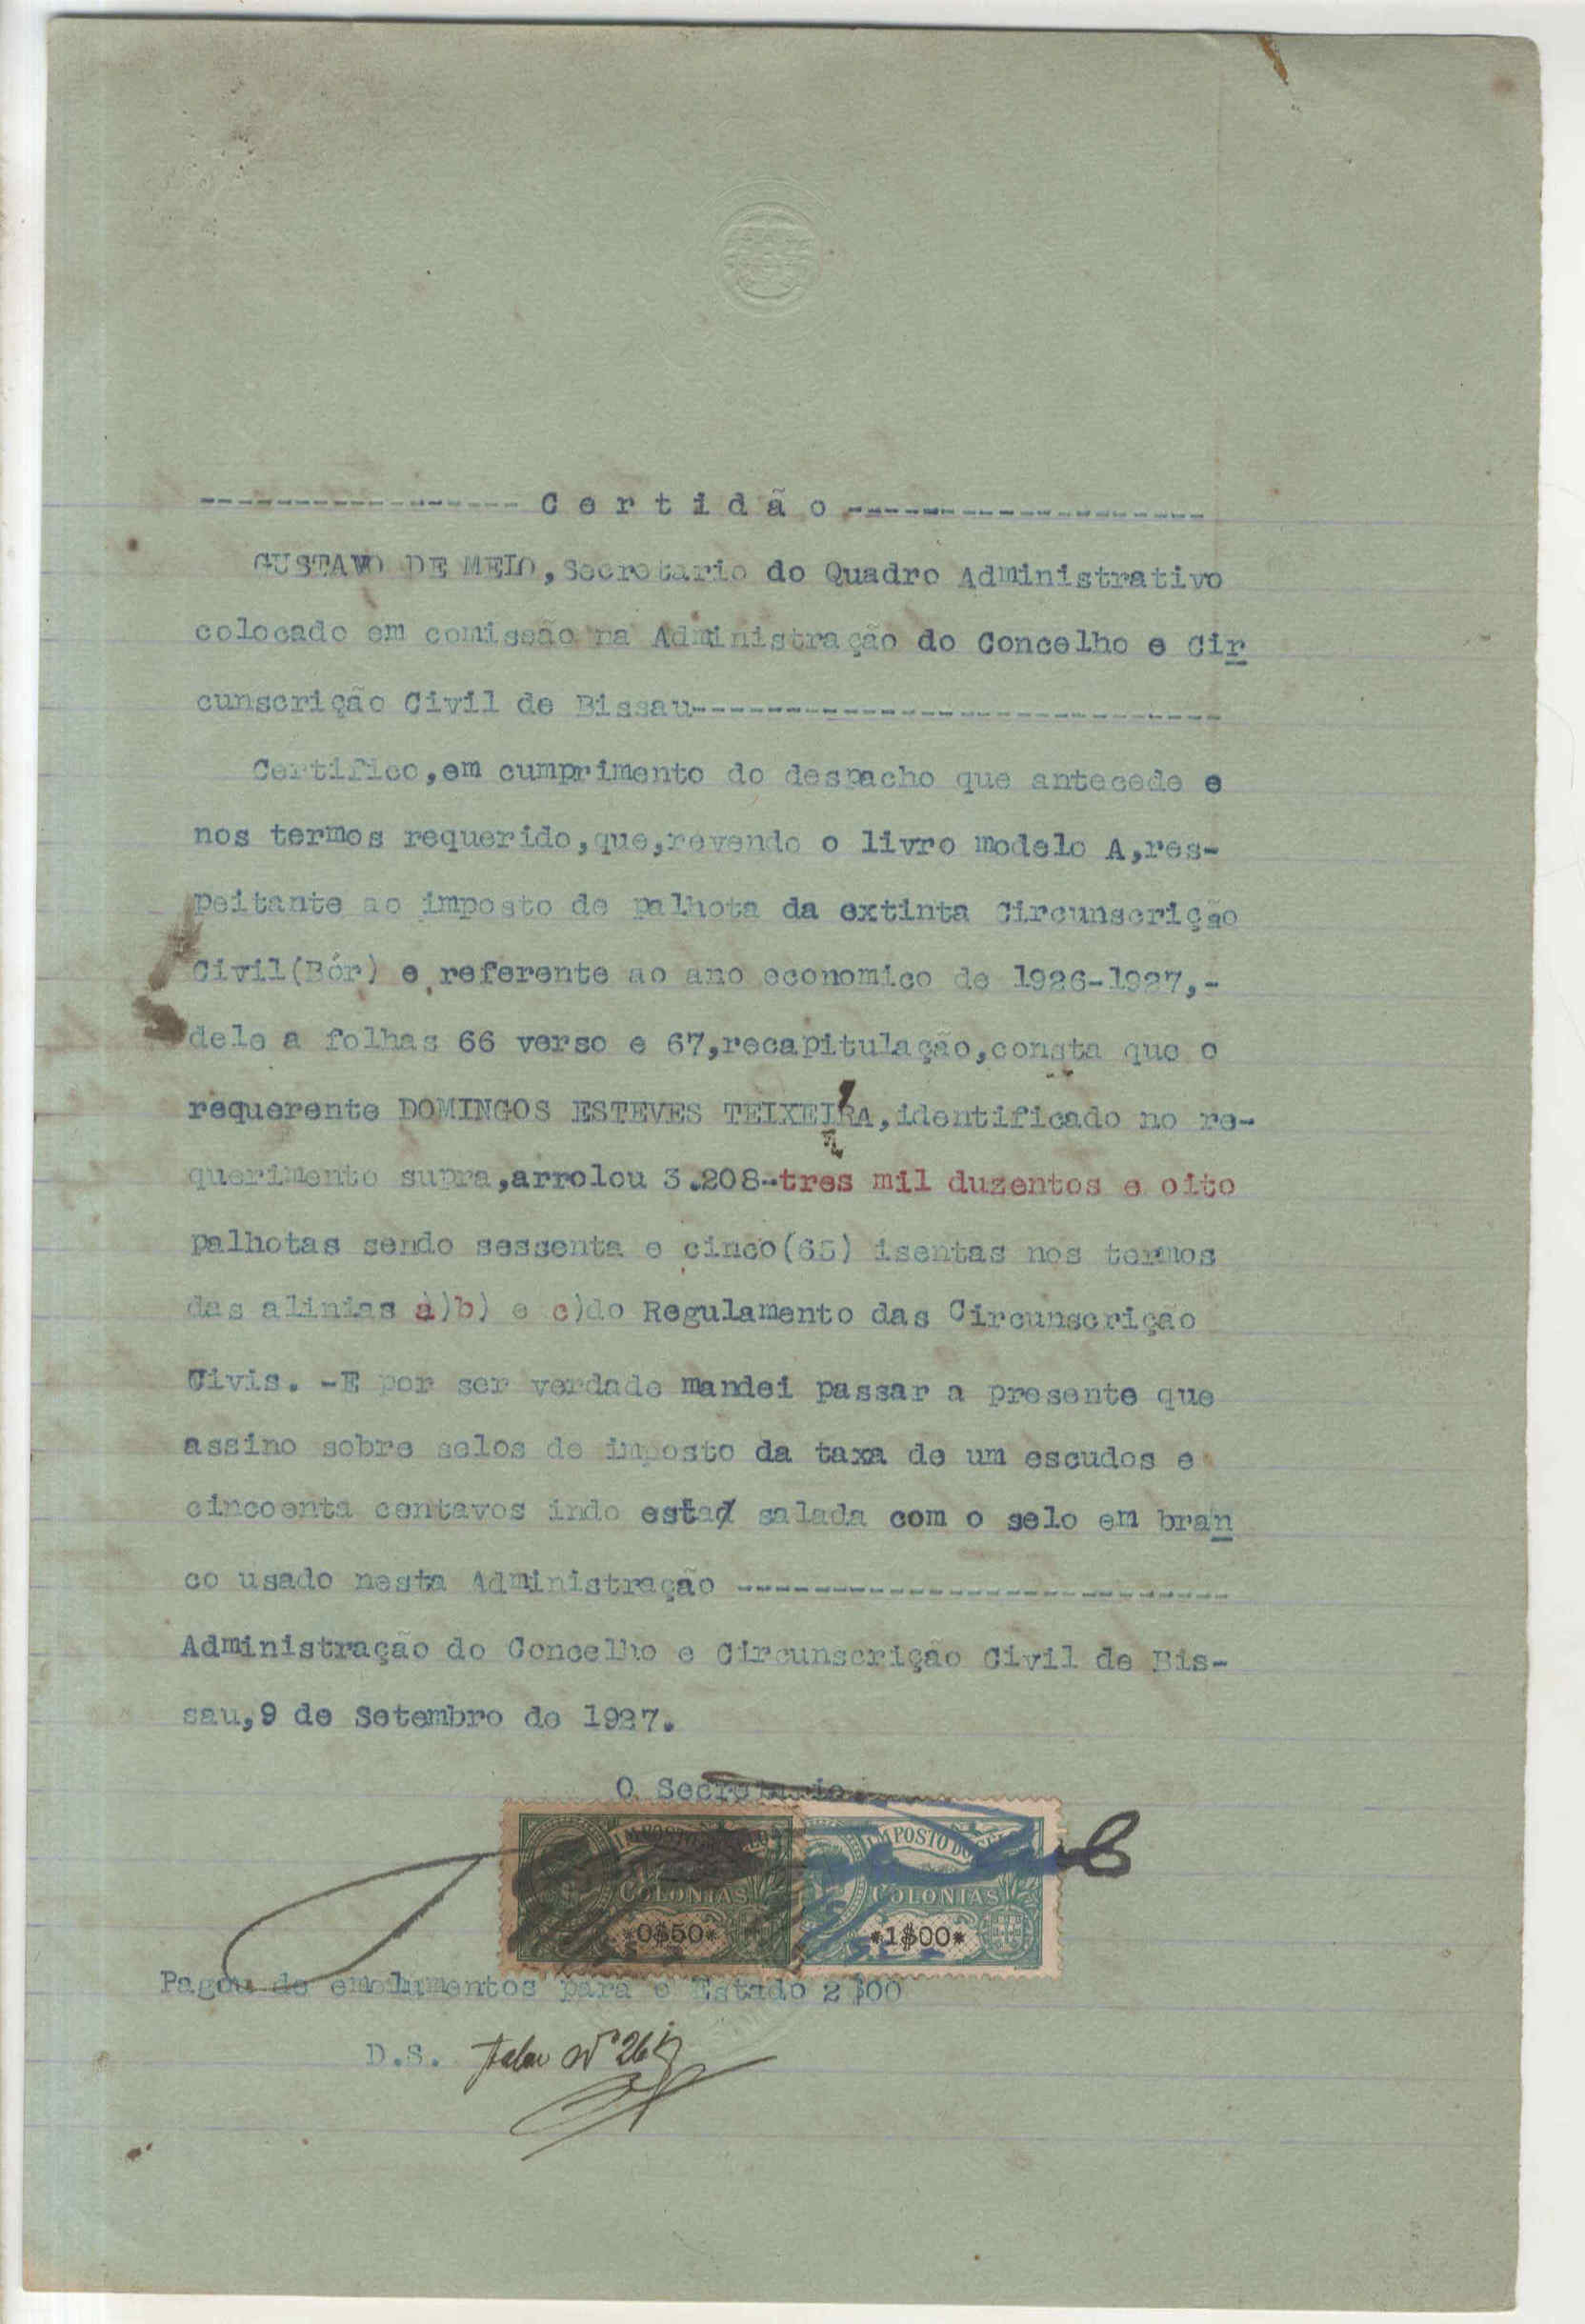 ----------------- C e r t i d ã o -------------------
GUSTAVO DE MELO, Secretario do Quadro Administrativo
colocado em comissão na Administração do Concelho e Cir
cunscrição Civil de Bissau----------------------------
Certifico,em cumprimento do despacho que antecede e
nos termos requerido,que,revendo o livro modelo A,res-
peitante ao imposto de palhota da extinta Circunscrição
Civil(Bór) e referente ao ano economico de 1926-1927,-
dele a folhas 66 verso e 67,recapitulação,consta que o
requerente DOMINGOS ESTEVES TEIXEIRA,identificado no re-
querimento supra,arrolou 3.208-tres mil duzentos e oito
palhotas sendo sessenta e cinco(65) isentas nos termos
das alinias a)b) e c)do Regulamento das Circunscriçao
Civis. -E por ser verdade mandei passar a presente que
assino sobre selos de imposto da taxa de um escudos e
cincoenta centavos indo esta salada com o selo em bran
co usado nesta Administração --------------------------
Administração do Concelho e Circunscrição Civil de Bis-
sau,9 de Setembro de 1927.
O Secretario
IMPOSTO DO SELO IMPOSTO DO SELO
COLONIAS COLONIAS
*0$50* *1$00*
Pagou de emolumentos para o Estado 2$00
D.S.